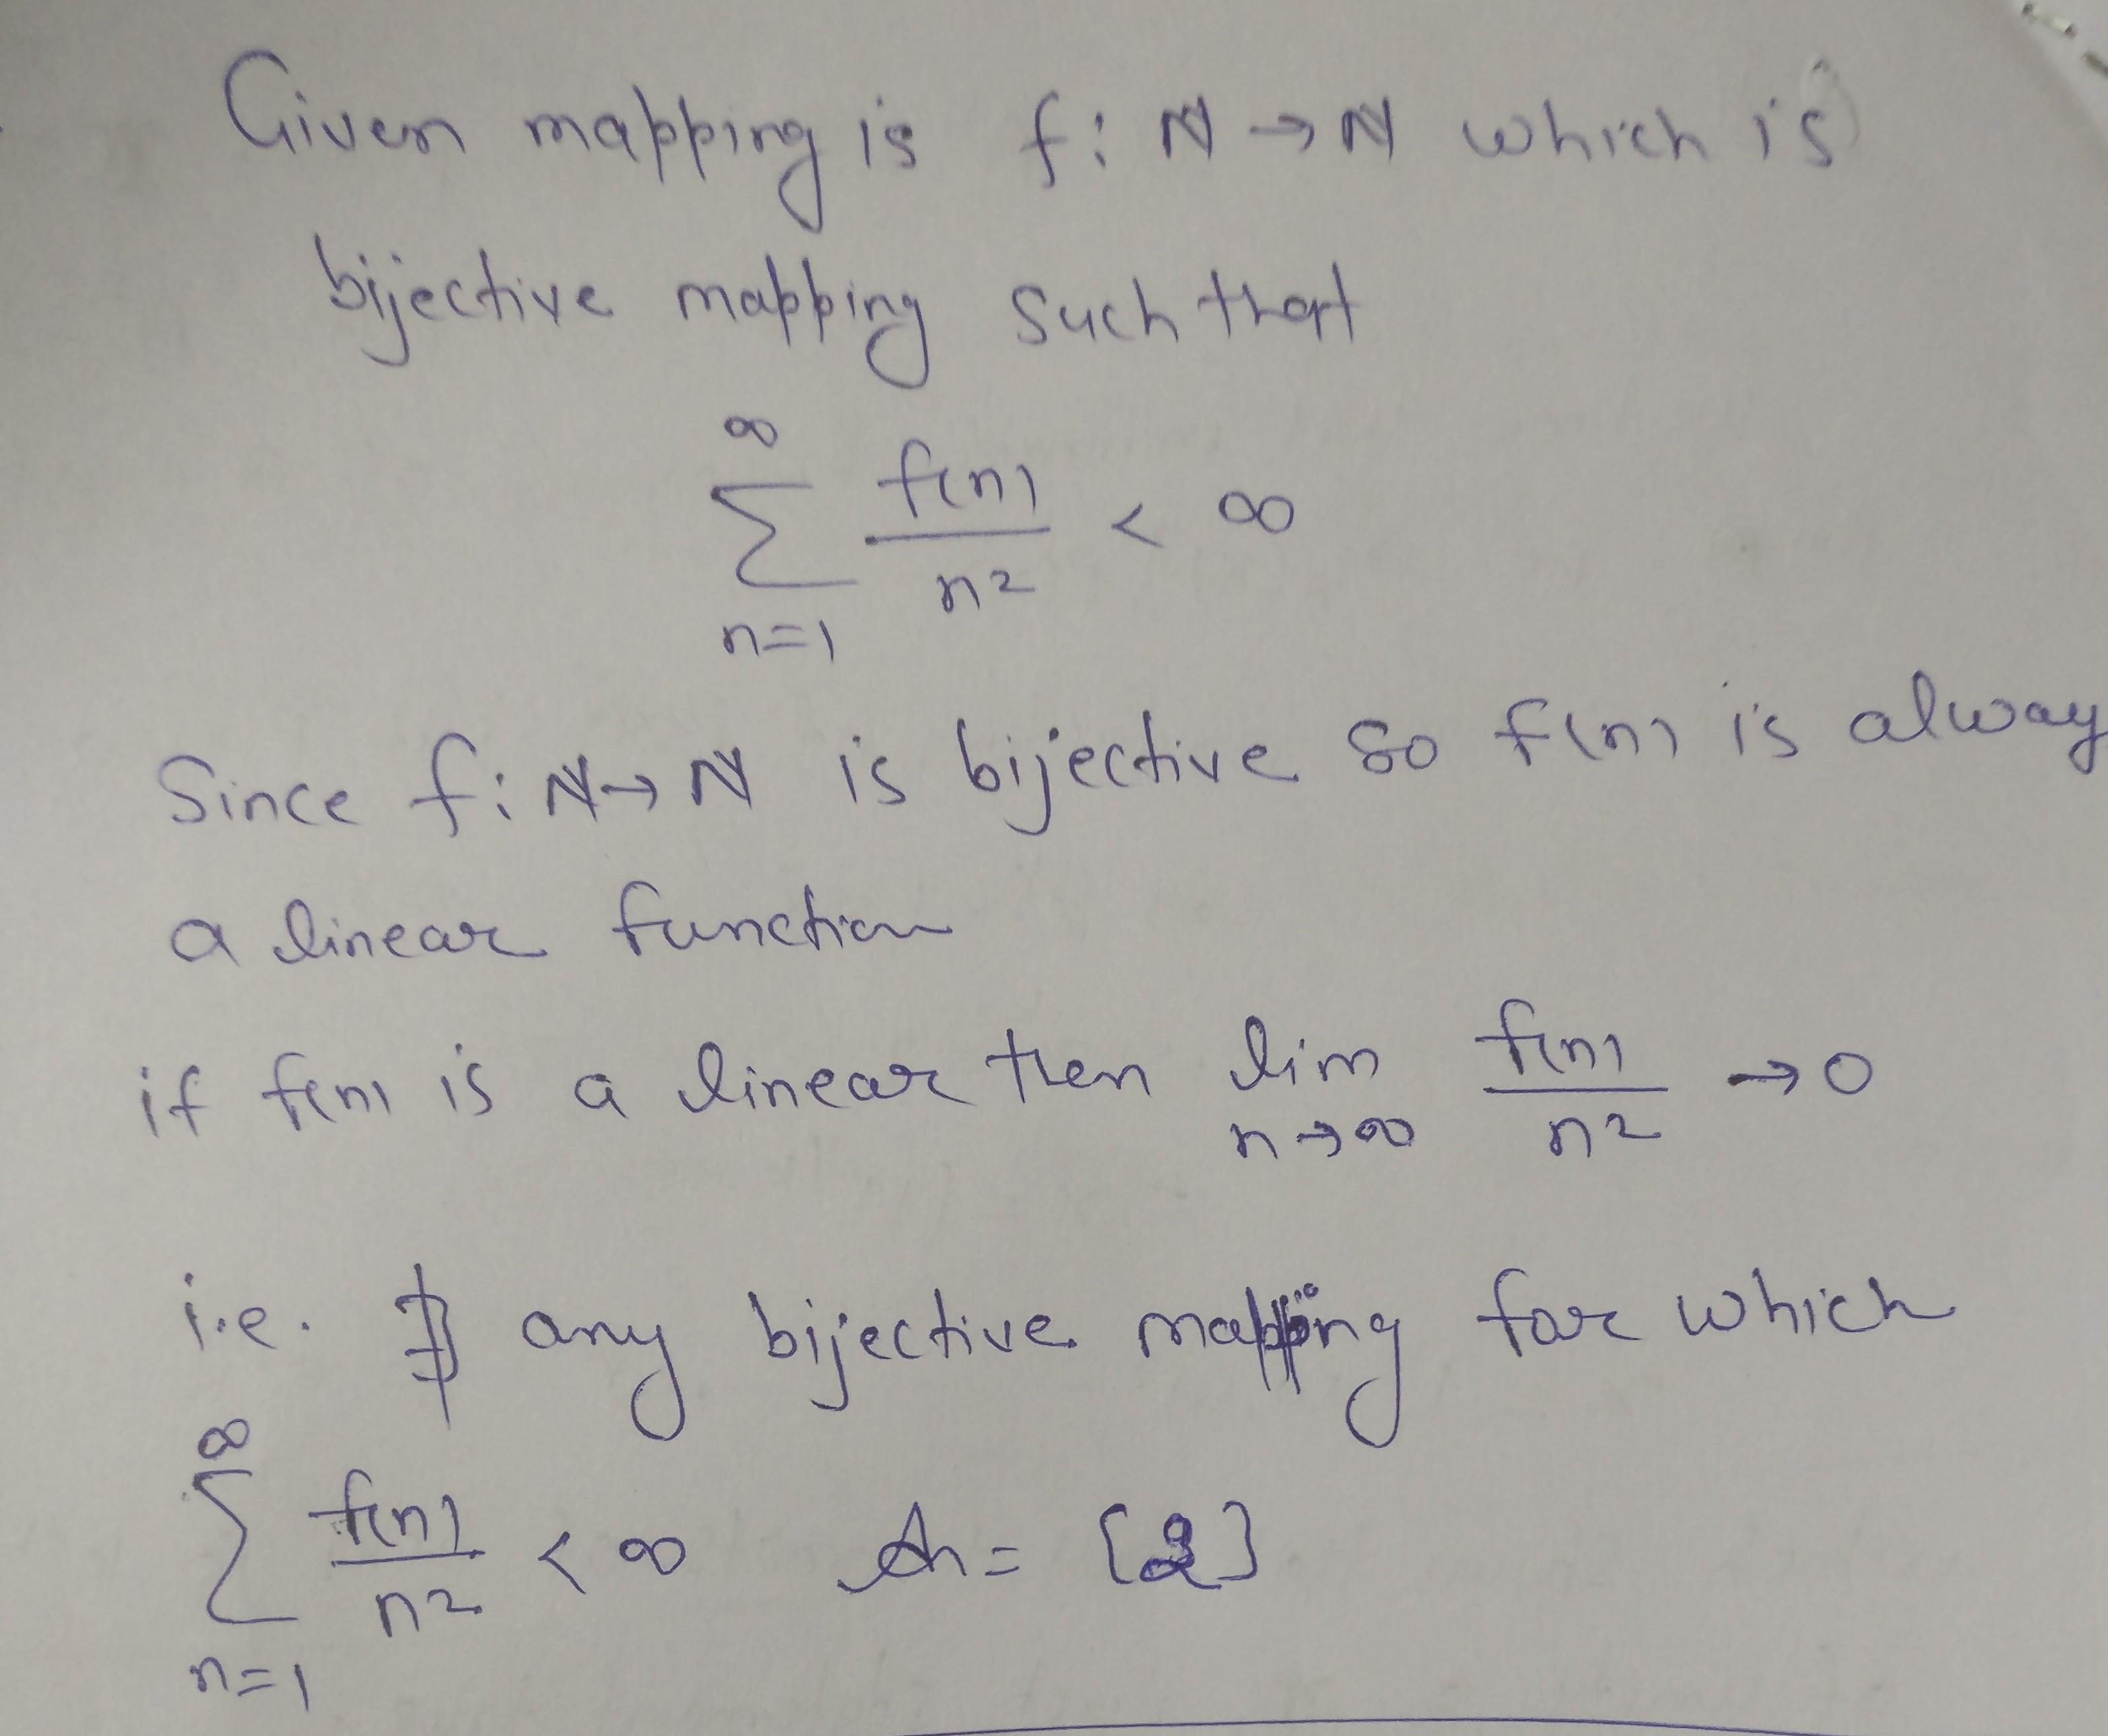 Given mapping is f: ℕ → ℕ which is
bijective mapping such that
∞
∑ f(n)/n² < ∞
n=1
Since f: ℕ → ℕ is bijective so f(n) is alway
a linear function
if f(n) is a linear then lim n→∞ f(n)/n² → 0
i.e. ∄ any bijective mapping for which
∞
∑ f(n)/n² < ∞ An = [2]
n=1